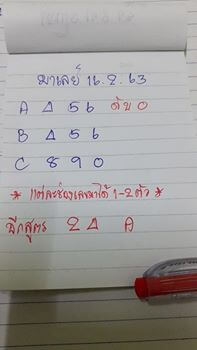 มาเลย์ 16.2.63
A △ 5 6 ดับ 0
B △ 5 6
C 8 9 0
* แต่ละช่องเลขมาได้ 1-2 ตัว *
อีกสูตร 2 △ A